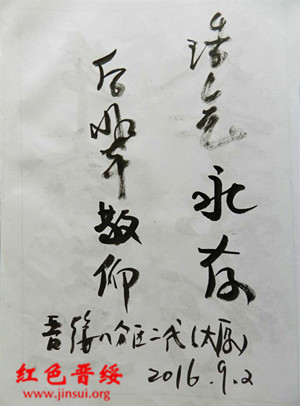 浩气永存
后辈敬仰
晋绥八分区二代(太原)
2016.9.2
红色晋绥
www.jinsui.org